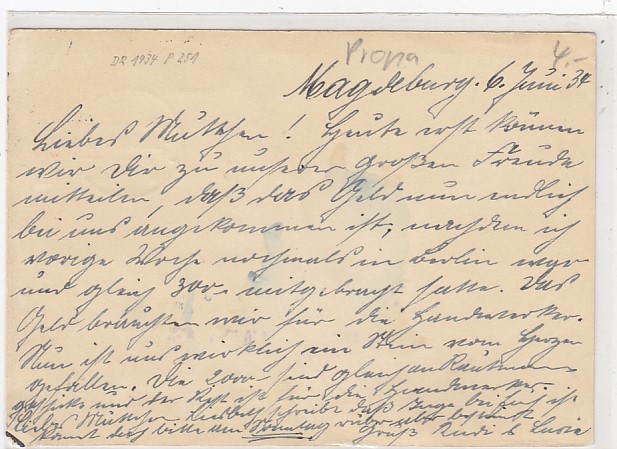 DR 1934 P 251
Propa
4.-
Magdeburg. 6. Juni 34
Liebes Muttchen! Heute erst können
wir Dir zu unserer großen Freude
mitteilen, daß das Geld nun endlich
bei uns angekommen ist, nachdem ich
vorige Woche nochmals in Berlin war
und gleich 300.- mitgebracht hatte. Das
Geld brauchten wir für die Handwerker.
Nun ist uns wirklich ein Stein vom Herzen
gefallen. Die 2000.- sind gleich an
und der Rest ist für die Handwerker.
Liebes Muttchen, schreibe daß Inge bei Euch ist
kommt doch bitte am Sonntag
Gruß Rudi &